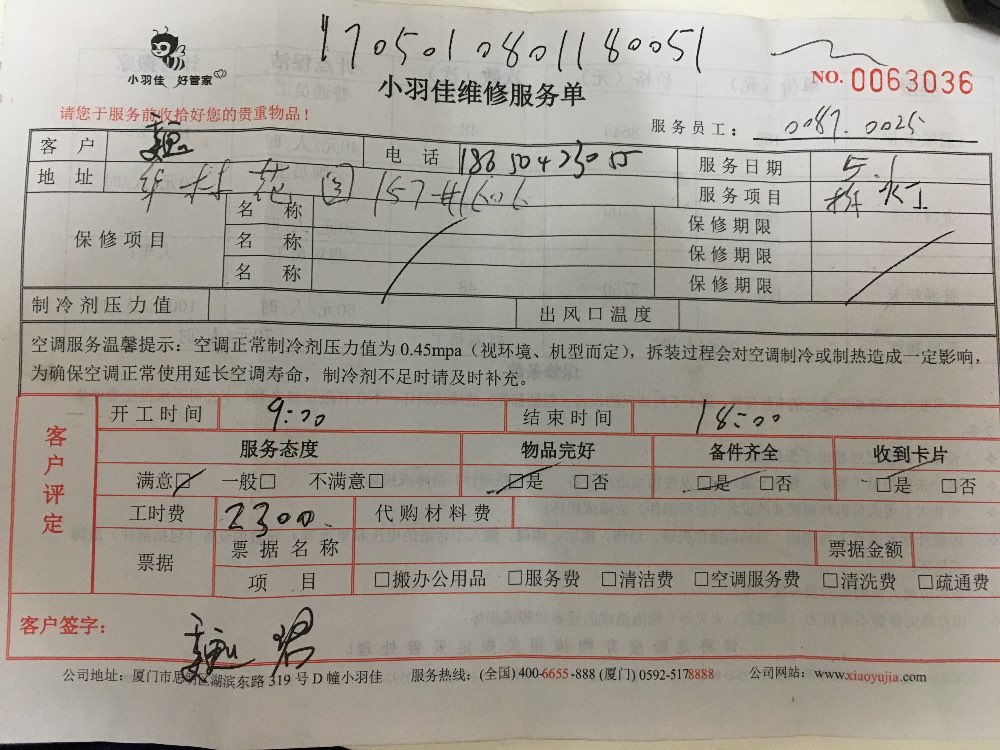 1705010801180051
小羽佳 好管家
小羽佳维修服务单
NO. 0063036
请您于服务前收拾好您的贵重物品！
服务员工： 0087. 0025
客 户 电 话 18650423055 服务日期 5.1
地 址 村 花 园 157#1606 服务项目 拆 灯
保修项目 名 称 保修期限
名 称 保修期限
名 称 保修期限
制冷剂压力值 出风口温度
空调服务温馨提示：空调正常制冷剂压力值为 0.45mpa（视环境、机型而定），拆装过程会对空调制冷或制热造成一定影响，
为确保空调正常使用延长空调寿命，制冷剂不足时请及时补充。
客户评定
开工时间 9:00 结束时间 18:00
服务态度 物品完好 备件齐全 收到卡片
满意□ 一般□ 不满意□ □是 □否 □是 □否 □是 □否
工时费 2300. 代购材料费
票据 票据名称 票据金额
项 目 □搬办公用品 □服务费 □清洁费 □空调服务费 □清洗费 □疏通费
客户签字：
公司地址：厦门市思明区湖滨东路 319 号 D 幢小羽佳 服务热线：(全国) 400-6655-888 (厦门) 0592-5178888 公司网站：www.xiaoyujia.com